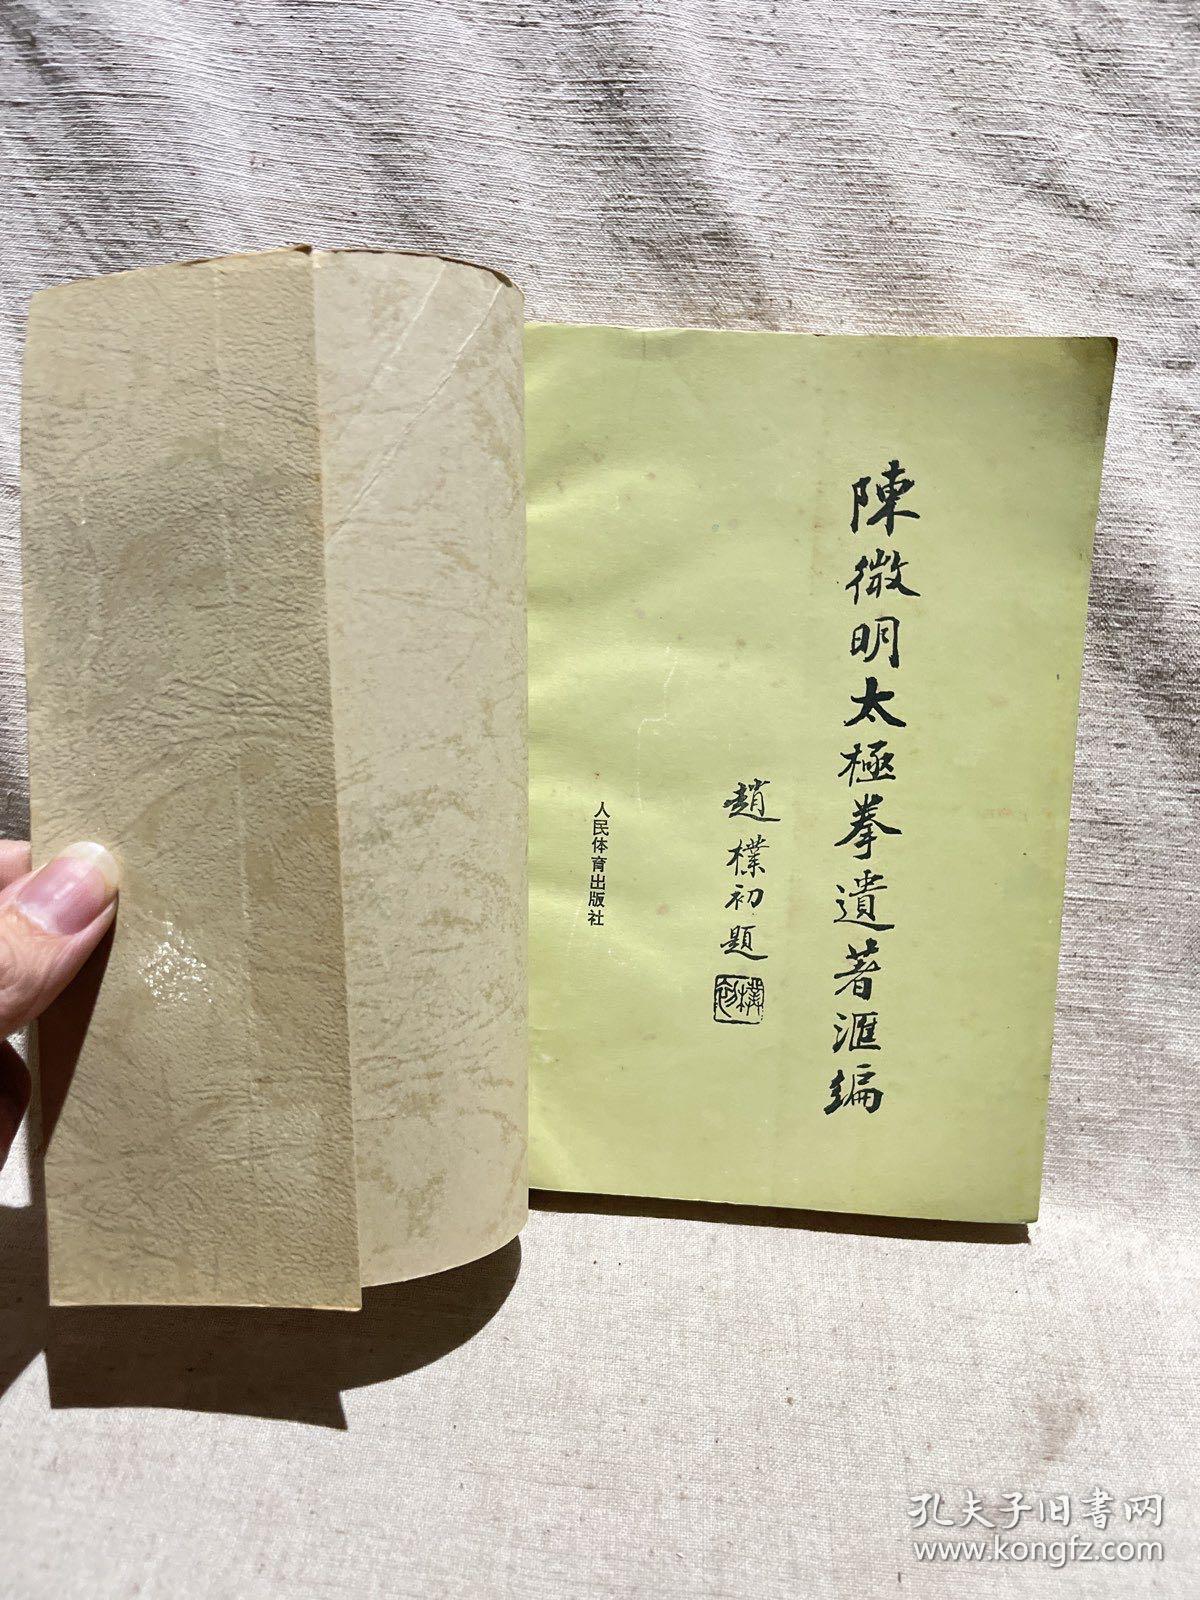 陳微明太極拳遺著滙编
趙樸初題
樸初
人民体育出版社
孔夫子旧書网
www.kongfz.com